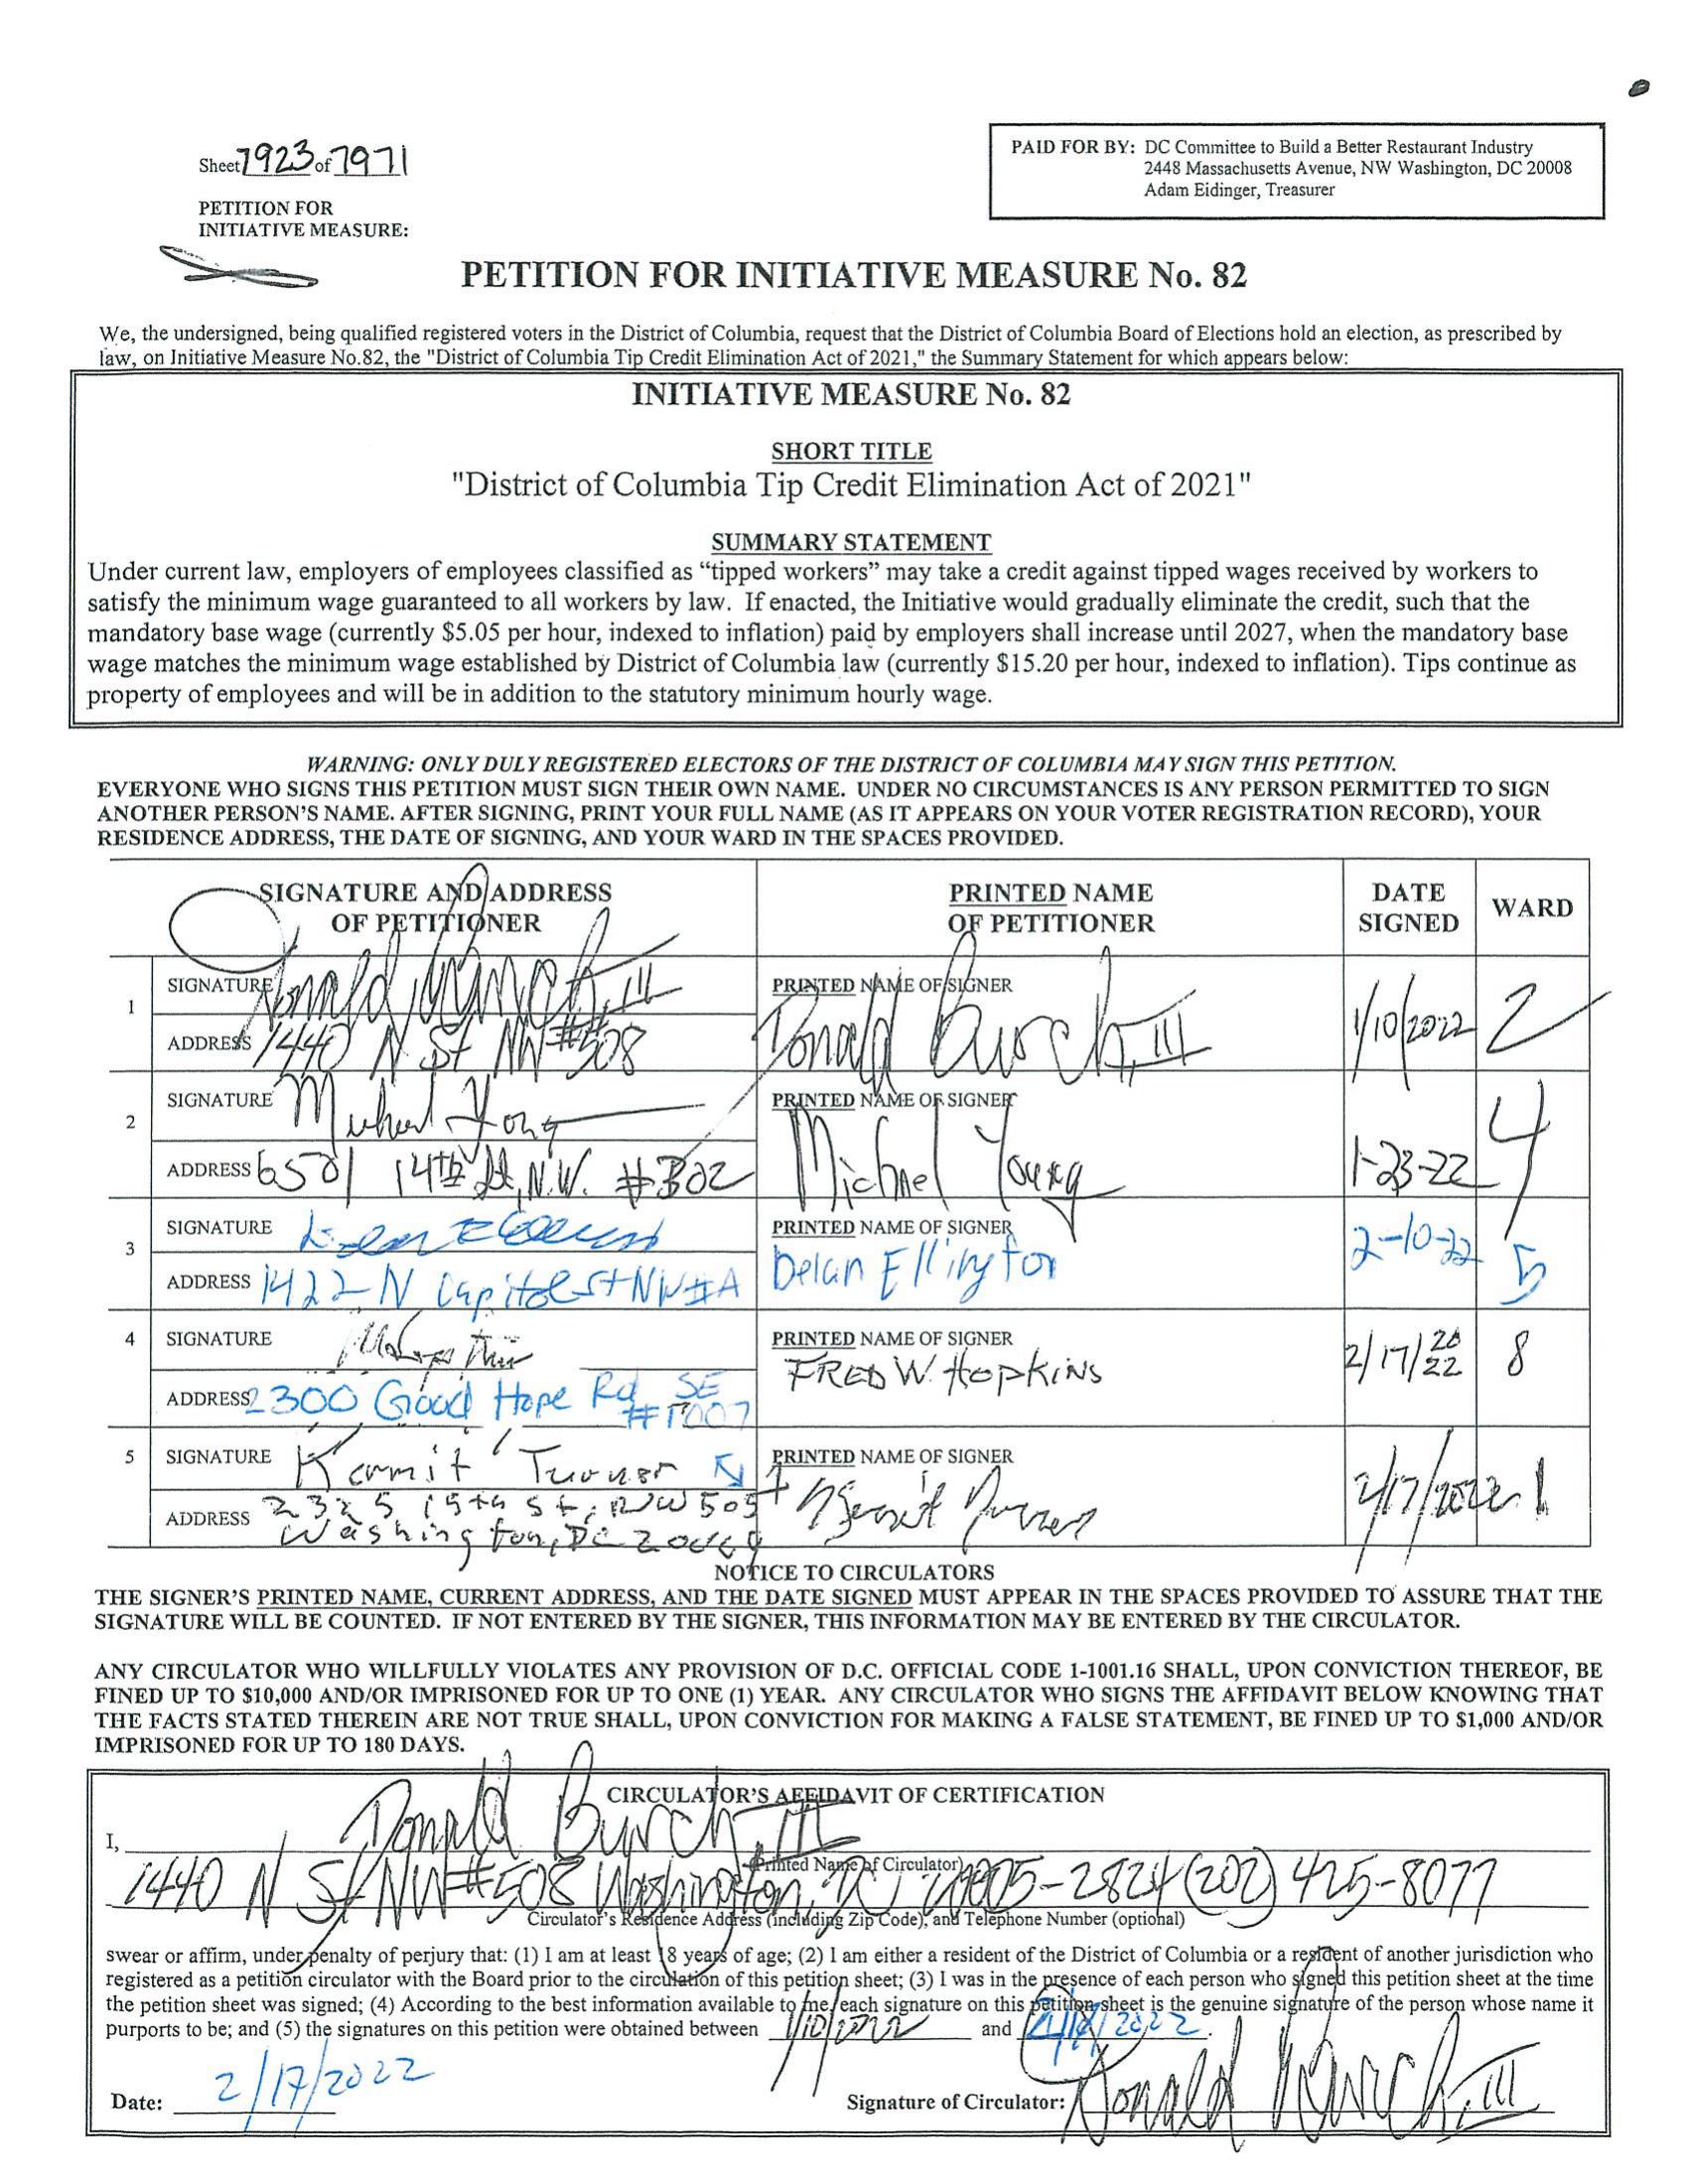 Sheet 7923 of 7971
PAID FOR BY: DC Committee to Build a Better Restaurant Industry
2448 Massachusetts Avenue, NW Washington, DC 20008
Adam Eidinger, Treasurer
PETITION FOR
INITIATIVE MEASURE:
PETITION FOR INITIATIVE MEASURE No. 82
We, the undersigned, being qualified registered voters in the District of Columbia, request that the District of Columbia Board of Elections hold an election, as prescribed by
law, on Initiative Measure No.82, the "District of Columbia Tip Credit Elimination Act of 2021," the Summary Statement for which appears below:
INITIATIVE MEASURE No. 82
SHORT TITLE
"District of Columbia Tip Credit Elimination Act of 2021"
SUMMARY STATEMENT
Under current law, employers of employees classified as “tipped workers” may take a credit against tipped wages received by workers to
satisfy the minimum wage guaranteed to all workers by law. If enacted, the Initiative would gradually eliminate the credit, such that the
mandatory base wage (currently $5.05 per hour, indexed to inflation) paid by employers shall increase until 2027, when the mandatory base
wage matches the minimum wage established by District of Columbia law (currently $15.20 per hour, indexed to inflation). Tips continue as
property of employees and will be in addition to the statutory minimum hourly wage.
WARNING: ONLY DULY REGISTERED ELECTORS OF THE DISTRICT OF COLUMBIA MAY SIGN THIS PETITION.
EVERYONE WHO SIGNS THIS PETITION MUST SIGN THEIR OWN NAME. UNDER NO CIRCUMSTANCES IS ANY PERSON PERMITTED TO SIGN
ANOTHER PERSON'S NAME. AFTER SIGNING, PRINT YOUR FULL NAME (AS IT APPEARS ON YOUR VOTER REGISTRATION RECORD), YOUR
RESIDENCE ADDRESS, THE DATE OF SIGNING, AND YOUR WARD IN THE SPACES PROVIDED.
SIGNATURE AND ADDRESS
OF PETITIONER
PRINTED NAME
OF PETITIONER
DATE
SIGNED
WARD
1
SIGNATURE Ronald Burch, III
ADDRESS 1440 N St NW #508
PRINTED NAME OF SIGNER
Ronald Burch, III
1/10/2022
2
2
SIGNATURE Michael Young
ADDRESS 6501 14th St, N.W. #302
PRINTED NAME OF SIGNER
Michael Young
1-23-22
4
3
SIGNATURE
ADDRESS 1422 N Capitol St NW #A
PRINTED NAME OF SIGNER
Delan Ellington
2-10-22
5
4
SIGNATURE
ADDRESS 2300 Good Hope Rd SE
#1007
PRINTED NAME OF SIGNER
FRED W. HOPKINS
2/17/2022
8
5
SIGNATURE Kermit Turner
ADDRESS 2325 15th St, NW 505
Washington, DC
PRINTED NAME OF SIGNER
2/17/2022
1
NOTICE TO CIRCULATORS
THE SIGNER'S PRINTED NAME, CURRENT ADDRESS, AND THE DATE SIGNED MUST APPEAR IN THE SPACES PROVIDED TO ASSURE THAT THE
SIGNATURE WILL BE COUNTED. IF NOT ENTERED BY THE SIGNER, THIS INFORMATION MAY BE ENTERED BY THE CIRCULATOR.
ANY CIRCULATOR WHO WILLFULLY VIOLATES ANY PROVISION OF D.C. OFFICIAL CODE 1-1001.16 SHALL, UPON CONVICTION THEREOF, BE
FINED UP TO $10,000 AND/OR IMPRISONED FOR UP TO ONE (1) YEAR. ANY CIRCULATOR WHO SIGNS THE AFFIDAVIT BELOW KNOWING THAT
THE FACTS STATED THEREIN ARE NOT TRUE SHALL, UPON CONVICTION FOR MAKING A FALSE STATEMENT, BE FINED UP TO $1,000 AND/OR
IMPRISONED FOR UP TO 180 DAYS.
CIRCULATOR'S AFFIDAVIT OF CERTIFICATION
I, Ronald Burch, III
(Printed Name of Circulator)
1440 N St NW #508 Washington, DC 20005-2824 (202) 425-8077
Circulator's Residence Address (including Zip Code), and Telephone Number (optional)
swear or affirm, under penalty of perjury that: (1) I am at least 18 years of age; (2) I am either a resident of the District of Columbia or a resident of another jurisdiction who
registered as a petition circulator with the Board prior to the circulation of this petition sheet; (3) I was in the presence of each person who signed this petition sheet at the time
the petition sheet was signed; (4) According to the best information available to me, each signature on this petition sheet is the genuine signature of the person whose name it
purports to be; and (5) the signatures on this petition were obtained between 1/10/2022 and
Date: 2/17/2022
Signature of Circulator: Ronald Burch, III